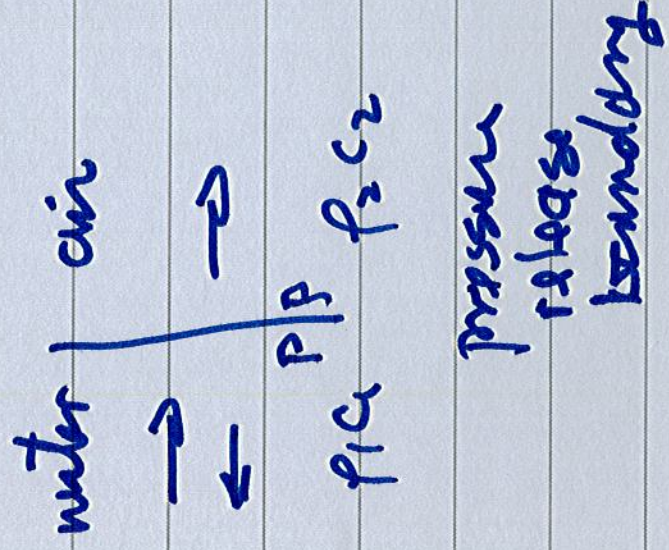 water air
→ →
←
P P
ρ₁c₁ ρ₂c₂
pressure
release
boundary